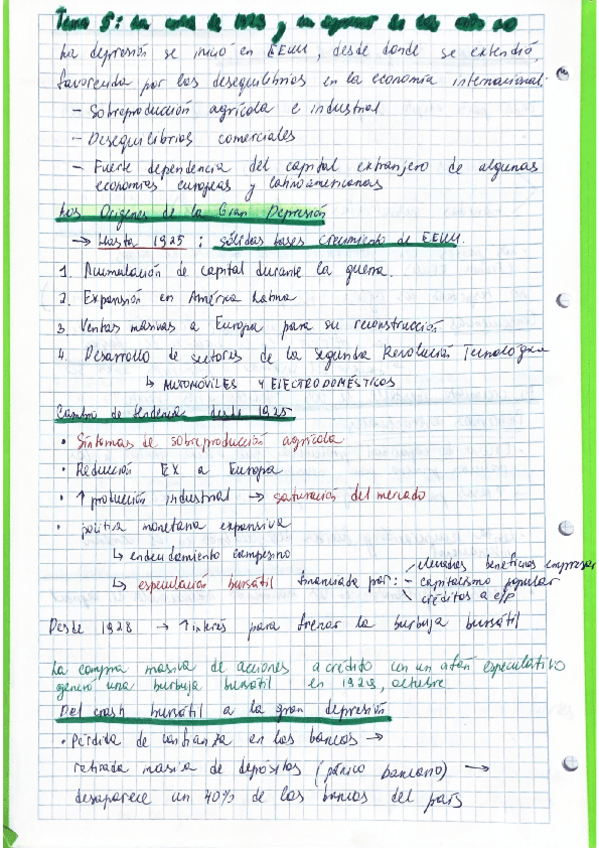 Tema 5: La crisis de 1929 y
La depresión se inició en EEUU, desde donde se extendió,
favorecida por los desequilibrios en la economía internacional:
- Sobreproducción agrícola e industrial
- Desequilibrios comerciales
- Fuerte dependencia del capital extranjero de algunas
economías europeas y latinoamericanas
Los Orígenes de la Gran Depresión
→ Hasta 1925: sólidas bases crecimiento de EEUU.
1. Acumulación de capital durante la guerra.
2. Expansión en América Latina
3. Ventas masivas a Europa para su reconstrucción
4. Desarrollo de sectores de la segunda Revolución Tecnológica
↳ AUTOMÓVILES Y ELECTRODOMÉSTICOS
Cambio de tendencia desde 1925
• Síntomas de sobreproducción agrícola
• Reducción EX a Europa
• ↑ producción industrial → saturación del mercado
• política monetaria expansiva
↳ endeudamiento campesino
↳ especulación bursátil financiada por: - elevados beneficios empresar
- capitalismo popular
- créditos a c/p
Desde 1928 → ↑ interés para frenar la burbuja bursátil
La compra masiva de acciones a crédito con un afán especulativo
generó una burbuja bursátil en 1929, octubre
Del crash bursátil a la gran depresión
• Pérdida de confianza en los bancos →
retirada masiva de depósitos (pánico bancario) →
desaparece un 40% de los bancos del país